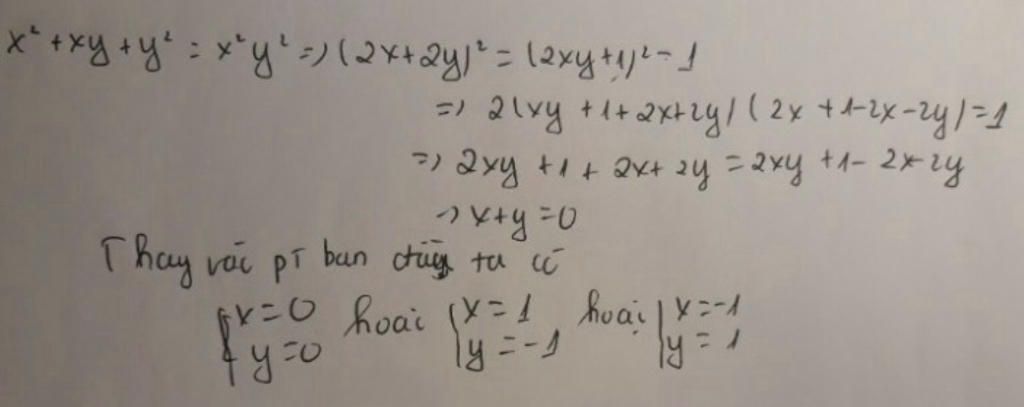 x² + xy + y² = x²y² => (2x+2y)² = (2xy+1)² - 1
=> 2(xy + 1 + 2x+2y)(2x + 1-2x-2y)=1
=> 2xy + 1 + 2x + 2y = 2xy + 1 - 2x-2y
=> x+y = 0
Thay vào pT ban đầu ta có
{x=0 hoặc {x=1 hoặc {x=-1
{y=0 {y=-1 {y=1